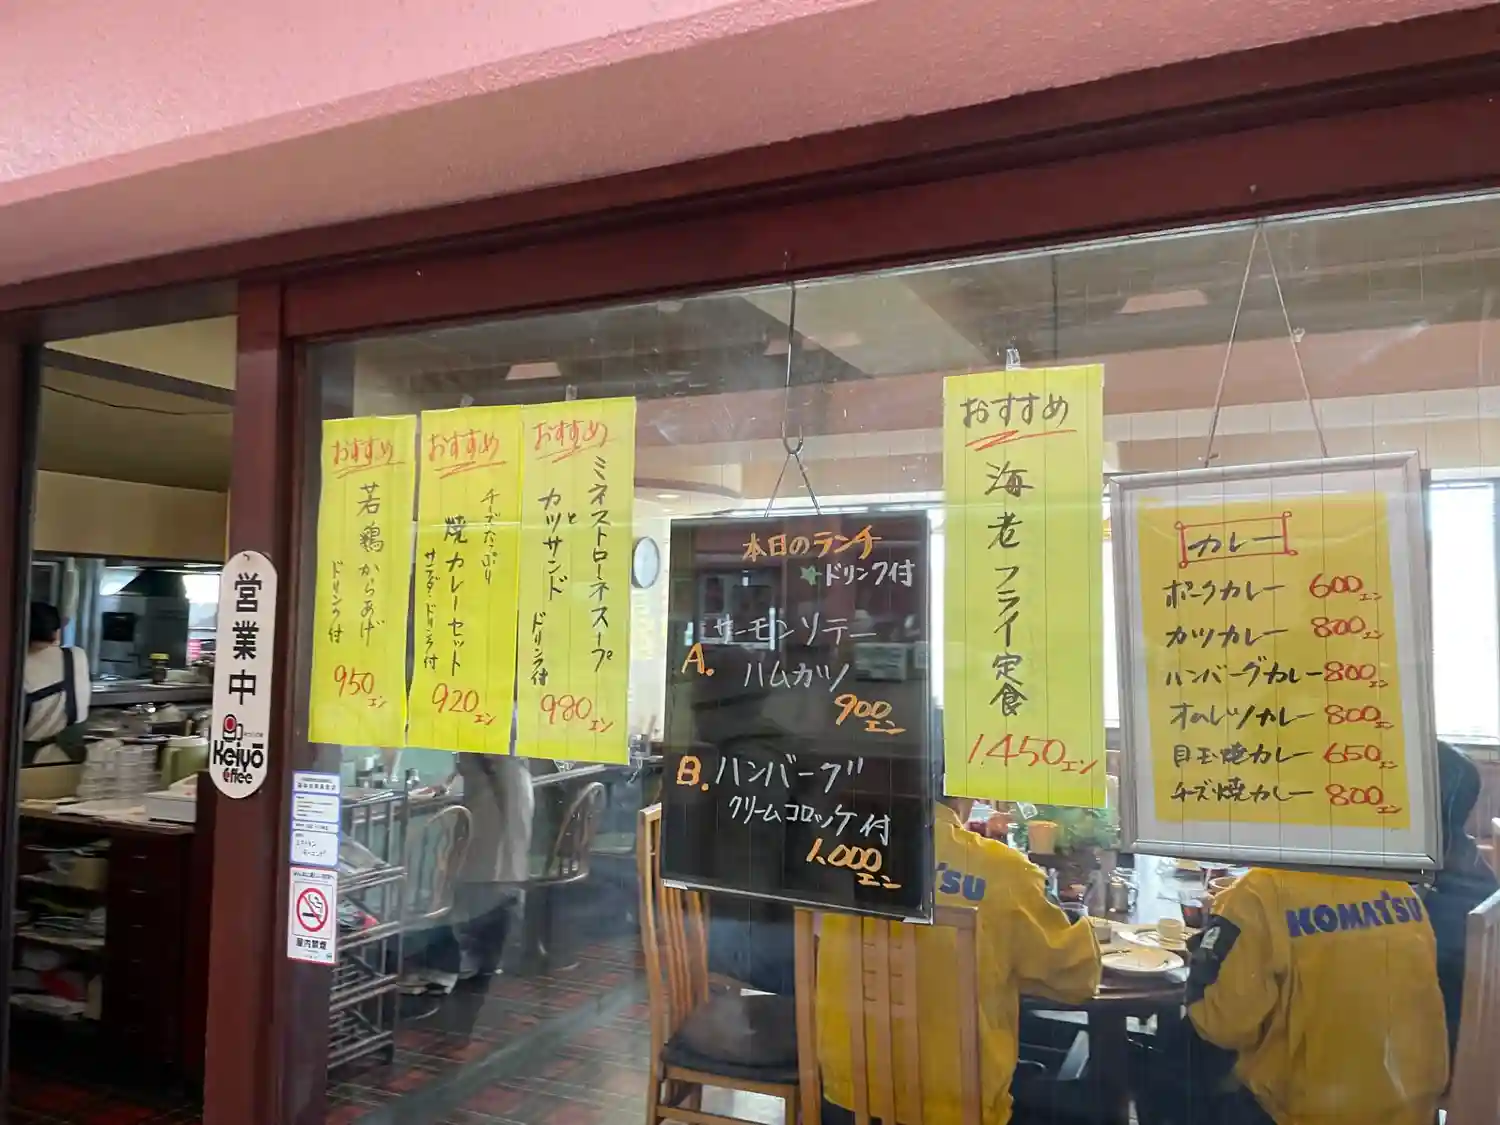 おすすめ
若鶏からあげ
ドリンク付
950エン
おすすめ
チーズたっぷり
焼カレーセット
サラダ・ドリンク付
920エン
おすすめ
ミネストローネスープ
と
カツサンド
ドリンク付
980エン
営業中
Keiyō
coffee
屋内禁煙
本日のランチ
ドリンク付
A.
サーモンソテー
ハムカツ
900エン
B.
ハンバーグ
クリームコロッケ付
1,000エン
おすすめ
海老フライ定食
1,450エン
カレー
ポークカレー 600エン
カツカレー 800エン
ハンバーグカレー 800エン
オムレツカレー 800エン
目玉焼カレー 650エン
チーズ焼カレー 800エン
KOMATSU